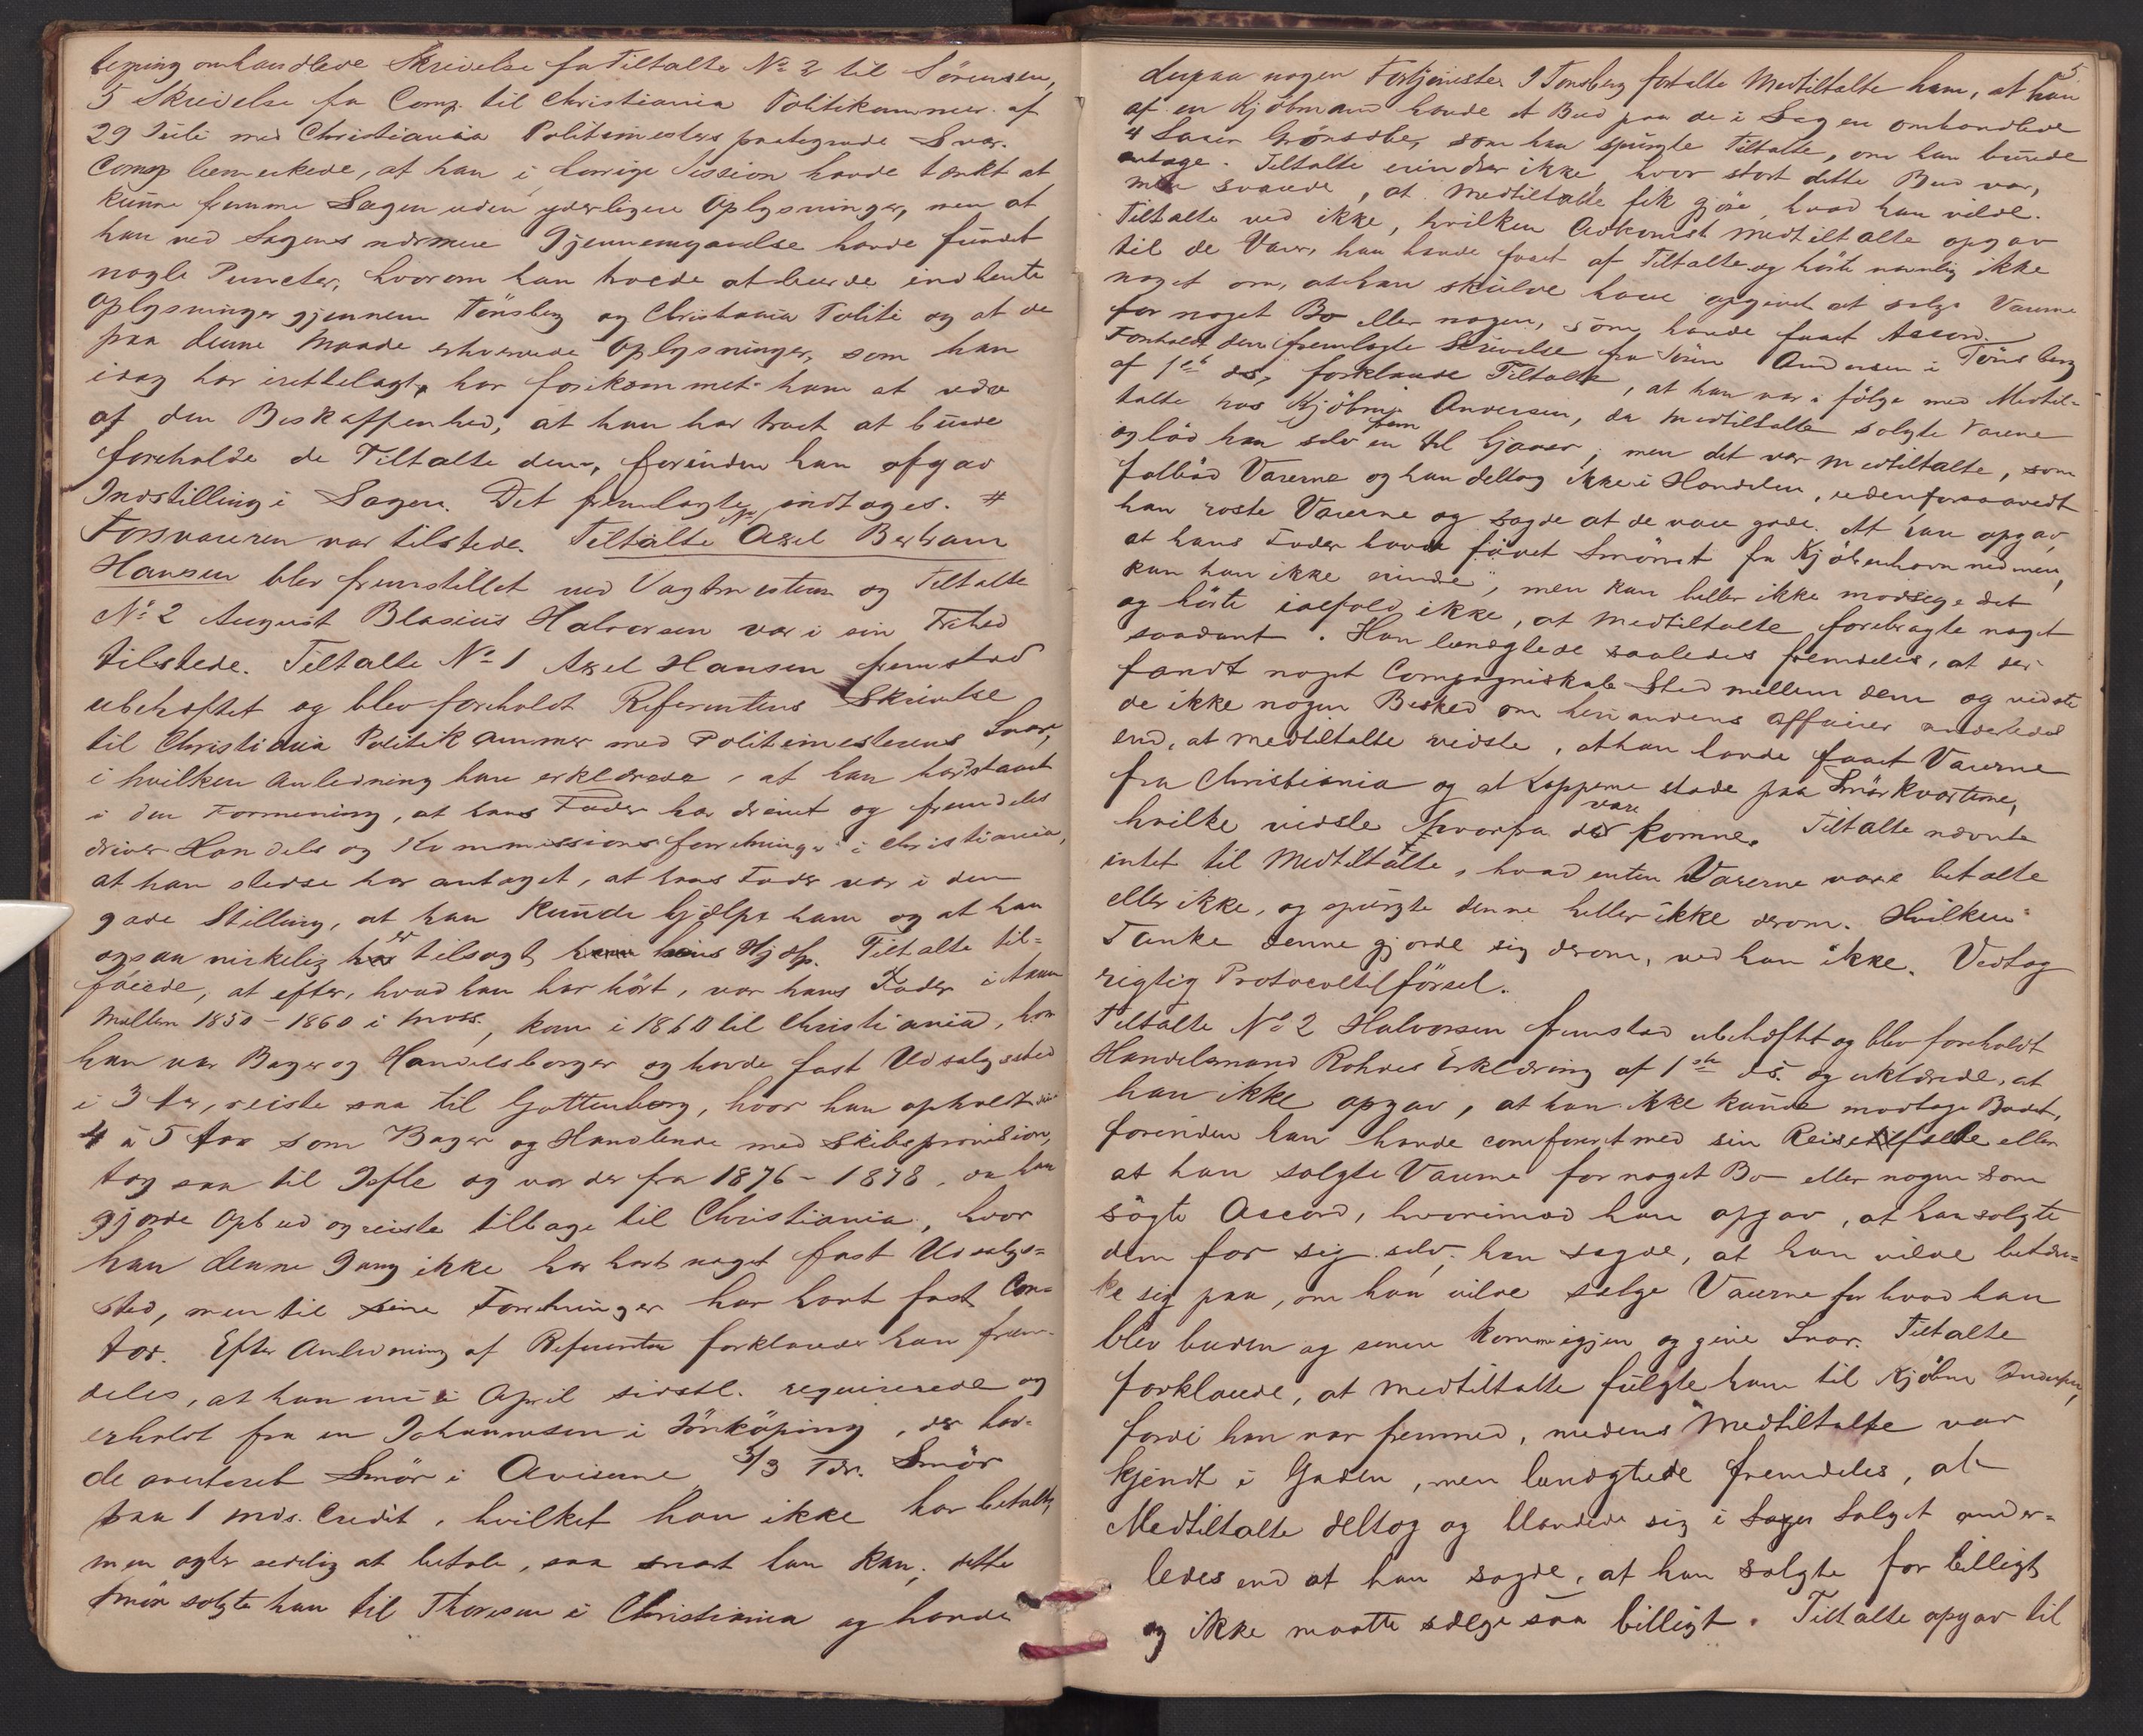 omhandlede Skrivelse fra Tiltalte No 2 til Sörensen,
5 Skrivelse fra Comp. til Christiania Politikammer af
29 Juli med Christiania Politimesters paategnede Svar.
Comp bemerkede, at han i forrige Session havde tænkt at
kunne fremme Sagen uden yderligere Oplysninger, men at
han ved Sagens nærmere Gjennemgaaelse havde fundet
nogle Puncter, hvorom han troede at burde indhente
Oplysninger gjennem Tönsberg og Christiania Politi og at de
paa denne Maade erhvervede Oplysninger, som han
idag har irettelagt, har forekommet ham at være
af den Beskaffenhed, at han har troet at burde
foreholde de Tiltalte dem, forinden han afgav
Indstilling i Sagen. Det fremlagte indtages. #
Forsvareren var tilstede. Tiltalte No 1 Axel Bertram
Hansen blev fremstillet ved Vagtmesteren og Tiltalte
No 2 August Blasius Halvorsen var i sin Frihed
tilstede. Tiltalte No 1 Axel Hansen fremstod
ubehæftet og blev foreholdt Referentens Skrivelse
til Christiania Politikammer med Politimesterens Svar,
i hvilken Anledning han erklærede, at han har staaet
i den Formening, at hans Fader har drevet og fremdeles
driver Handels og Kommissionsforretninger i Christiania,
at han stedse har antaget, at hans Fader var i den
gode Stilling, at han kunde hjælpe ham og at han
ogsaa virkelig er tilsagt hans Hjælp. Tiltalte til-
föiede, at efter, hvad han har hört, var hans Fader i Aarene
mellem 1850-1860 i Moss, kom i 1860 til Christiania, hvor
han var Bager og Handelsborger og havde fast Udsalgssted
i 3 Aar, reiste saa til Gottenborg, hvor han opholdt sig
4 à 5 Aar som Bager og Handlende med Skibsprovision,
tog saa til Gefle og var der fra 1876-1878, da han
gjorde Opbud og reiste tilbage til Christiania, hvor
han denne Gang ikke har havt noget fast Udsalgs-
sted, men til sine Forretninger har havt fast Con-
tor. Efter Anledning af Referenten forklarede han frem-
deles, at han nu i April sidstl. requirerede og
erholdt fra en Johannesen i Jönköping, der hav-
de averteret Smör i Aviserne, 3/3 Tdr. Smör
paa 1 Mds. Credit, hvilket han ikke har betalt,
men agter redelig at betale, saa snart han kan; dette
Smör solgte han til Thoresen i Christiania og havde
5.
derpaa nogen Fortjeneste. I Tönsberg fortalte Medtiltalte ham, at han
af en Kjöbmand havde et Bud paa de i Sagen omhandlede
4 som han spurgte Tiltalte, om han burde
antage. Tiltalte erindrer ikke, hvor stort dette Bud var,
men svarede, at Medtiltalte fik gjöre, hvad han vilde.
Tiltalte ved ikke, hvilken Adkomst Medtiltalte opgav
til de Varer, han havde faaet af Tiltalte og hörte navnlig ikke
noget om, at han skulde have opgivet at sælge Varerne
for noget Bo eller nogen, som havde faaet Accord.
Foreholdt den fremlagte Skrivelse fra Sören Andersen i Tönsberg
af 1ste ds, forklarede Tiltalte, at han var i fölge med Medtil-
talte hos Kjöbm. Andersen, da Medtiltalte solgte Varerne
og lod ham selv til Gaver; men det var Medtiltalte, som
falböd Varerne og han deltog ikke i Handelen, uden forsaavidt
han roste Varerne og sagde at de vare gode. At han opgav,
at hans Fader havde faaet Smörret fra Kjöbenhavn
kan han ikke erindre, men kan heller ikke modsige det
og hörte ialfald ikke, at Medtiltalte forebragte noget
saadant. Han benægtede saaledes fremdeles, at der
fandt noget Compagniskab Sted mellem dem og vidste
de ikke nogen Besked om hinandens Affairer anderledes
end, at Medtiltalte vidste, at han havde faaet Varerne
fra Christiania og at Lapperne stode paa Smörkvarterne,
hvilke vidste hvorfra de vare komne. Tiltalte nævnte
intet til Medtiltalte, hvad enten Varerne vare betalte
eller ikke, og spurgte denne heller ikke derom. Hvilken
Tanke denne gjorde sig derom, ved han ikke. Vedtog
rigtig Protocoltilförsel.
Tiltalte No 2 Halvorsen fremstod ubehæftet og blev foreholdt
Handelsmand Rohdes Erklæring af 1ste ds. og erklærede, at
han ikke opgav, at han ikke kunde modtage Budet,
forinden han havde confereret med sin Reisefælle eller
at han solgte Varerne for noget Bo eller nogen som
sögte Accord, hvorimod han opgav, at han solgte
dem for sig selv; han sagde, at han vilde betæn-
ke sig paa, om han vilde sælge Varerne for hvad han
blev buden og senere komme igjen og give Svar. Tiltalte
forklarede, at Medtiltalte fulgte ham til Kjöbm Andersen,
fordi han var fremmed, medens Medtiltalte var
kjendt i Gaden, men benægtede fremdeles, at
Medtiltalte deltog og blandede sig i Salget ander-
ledes end at han sagde, at han solgte for billigt
og ikke maatte sælge saa billigt. Tiltalte opgav til